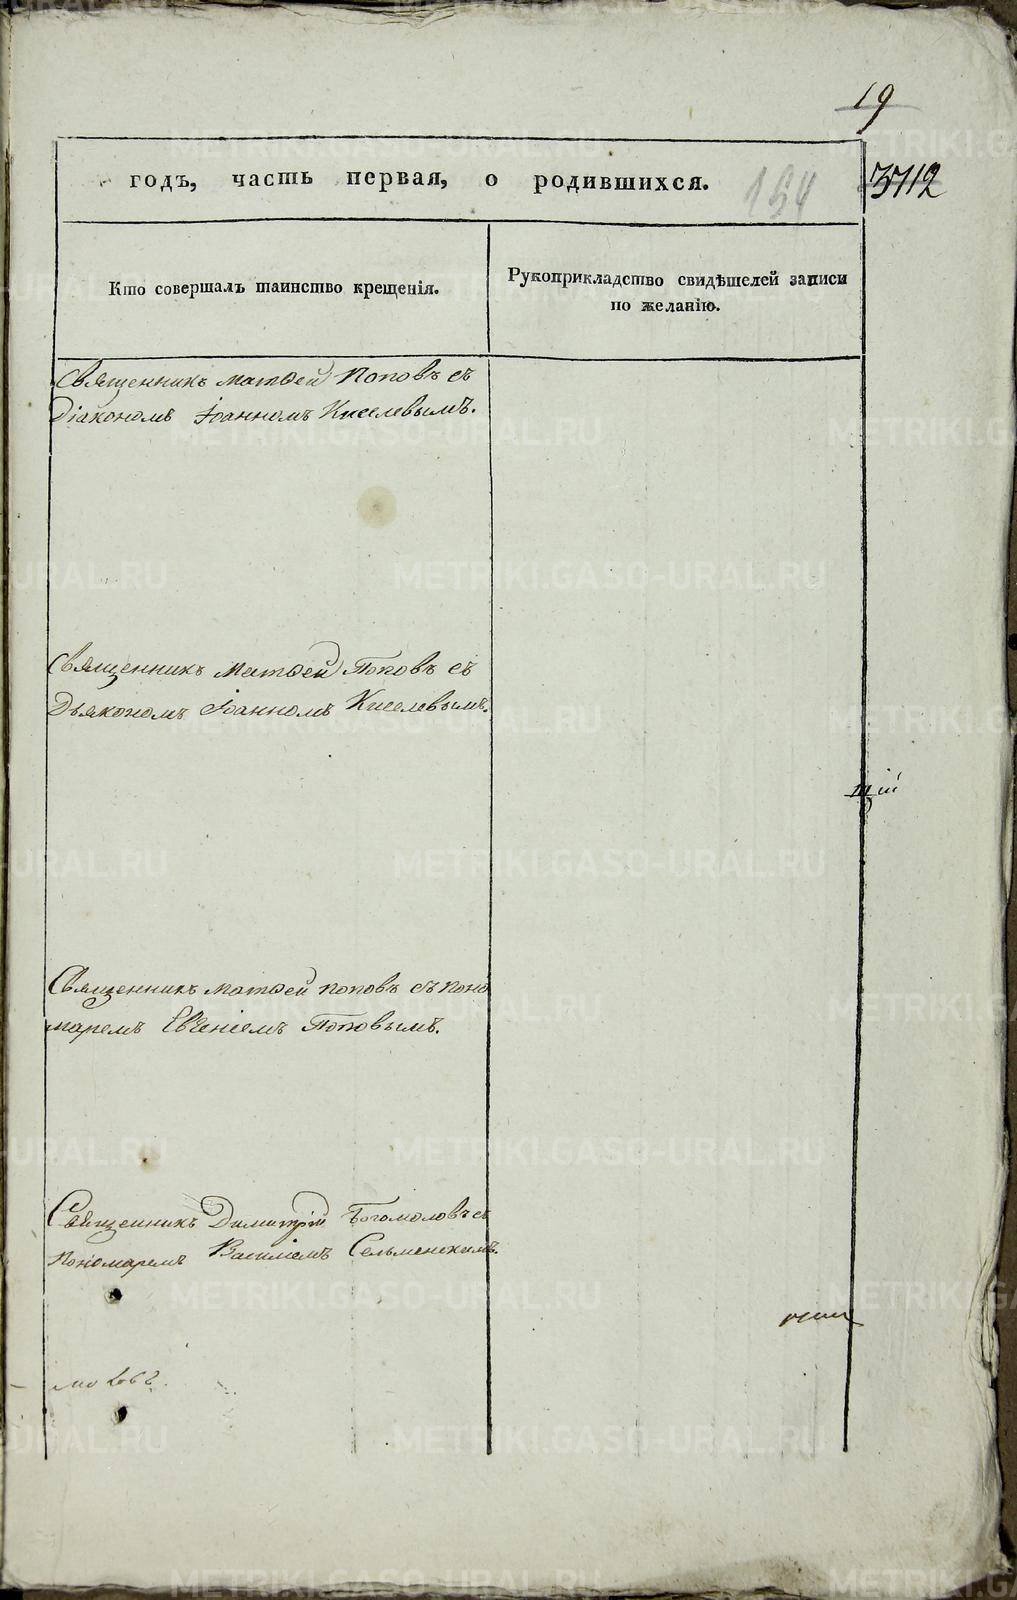 19
годъ, часть первая, о родившихся.
154
3712
Кто совершалъ таинство крещенія.
Рукоприкладство свидѣтелей записи
по желанію.
Священникъ Матѳей Поповъ съ
Діакономъ Іоанномъ Киселевымъ.
Священникъ Матѳей Поповъ съ
Дьякономъ Іоанномъ Киселевымъ.
щій
Священникъ Матѳей Поповъ съ поно
маремъ Евгеніемъ Поповымъ.
Священникъ Димитрій Богомоловъ съ
пономаремъ Василіемъ Сельменскимъ.
METRIKI.GASO-URAL.RU